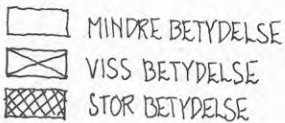 MINDRE BETYDELSE
VISS BETYDELSE
STOR BETYDELSE